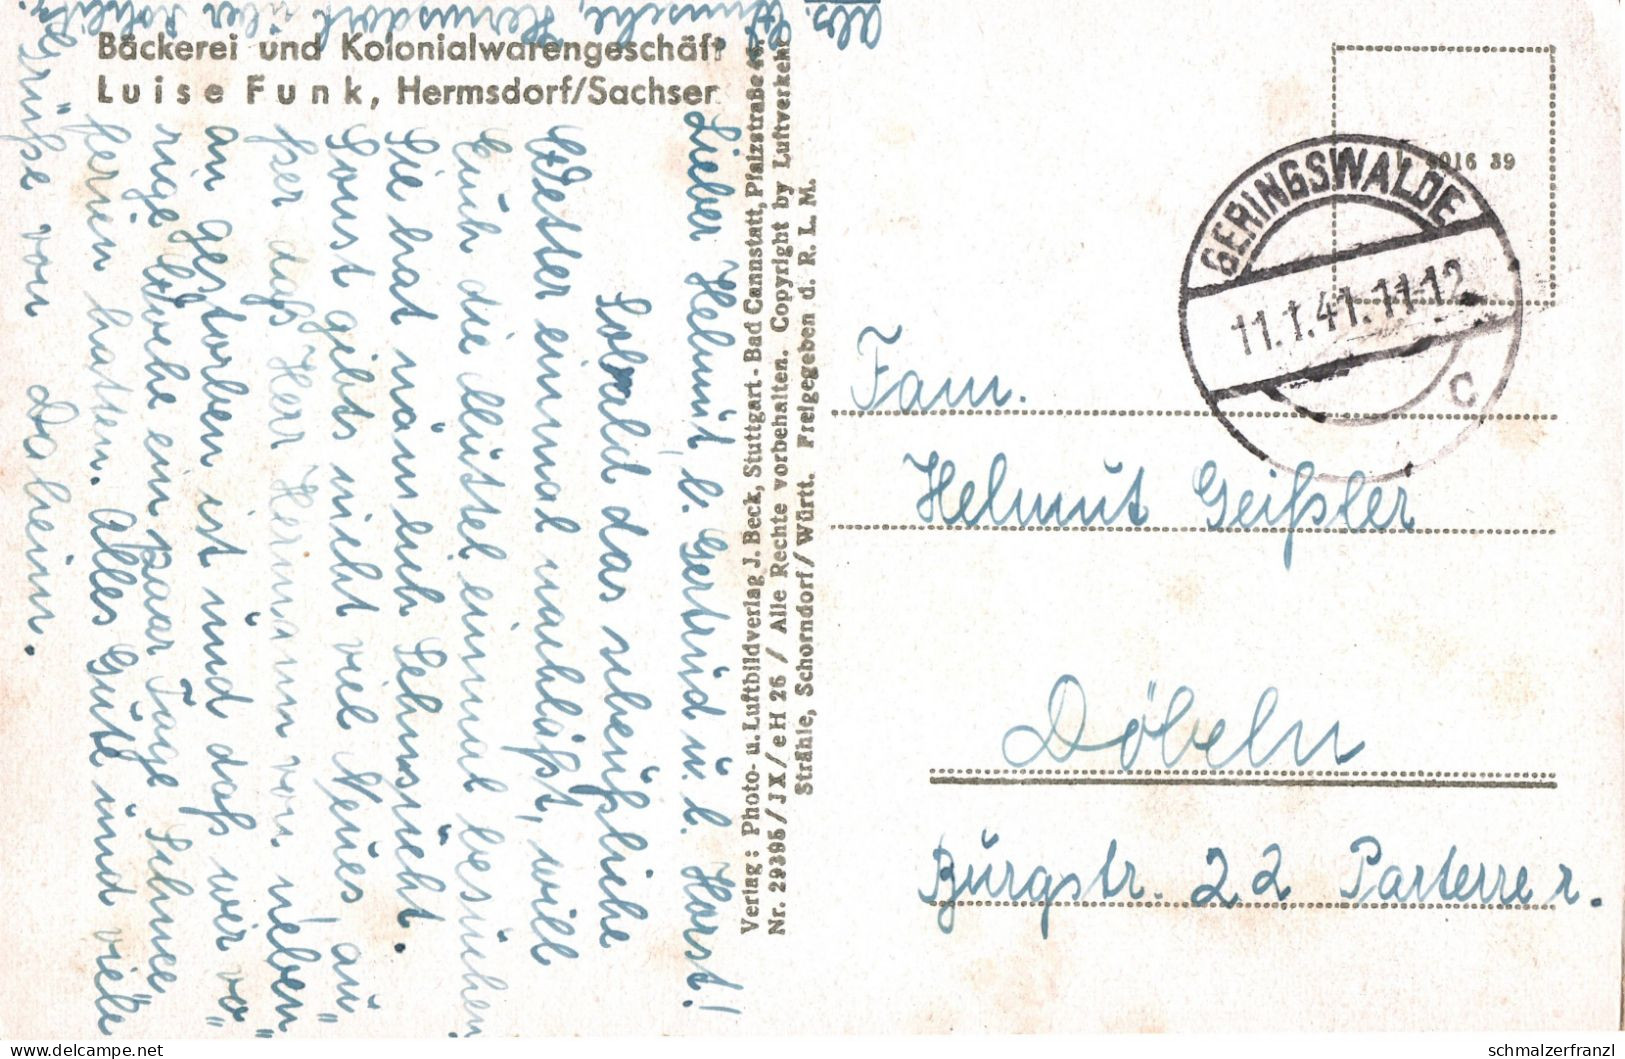 Abs. Wünsche, Hermsdorf über Rochlitz.
Bäckerei und Kolonialwarengeschäft
Luise Funk, Hermsdorf/Sachsen
Lieber Helmut, l. Gertrud u. l. Horst!
Sobald das scheußliche
Wetter einmal nachläßt, will
Euch die Mutter einmal besuchen.
Sie hat nämlich Sehnsucht.
Sonst gibts nicht viel Neues, au-
ßer daß Herr Hermann von neben-
an gestorben ist und daß wir vo-
rige Woche ein paar Tage Schnee-
ferien hatten. Alles Gute und viele
Grüße von Daheim.
Verlag: Photo- u. Luftbildverlag J. Beck, Stuttgart-Bad Cannstatt, Pfalzstraße
Nr. 29395/JX/eH 26 / Alle Rechte vorbehalten. Copyright by Luftverkehr
Strähle, Schorndorf/Württ. Freigegeben d. R. L. M.
6016 39
GERINGSWALDE
11.1.41.11-12
c
Fam.
Helmut Geißler
Döbeln
Burgstr. 22 Parterre r.
© schmalzerfranzl